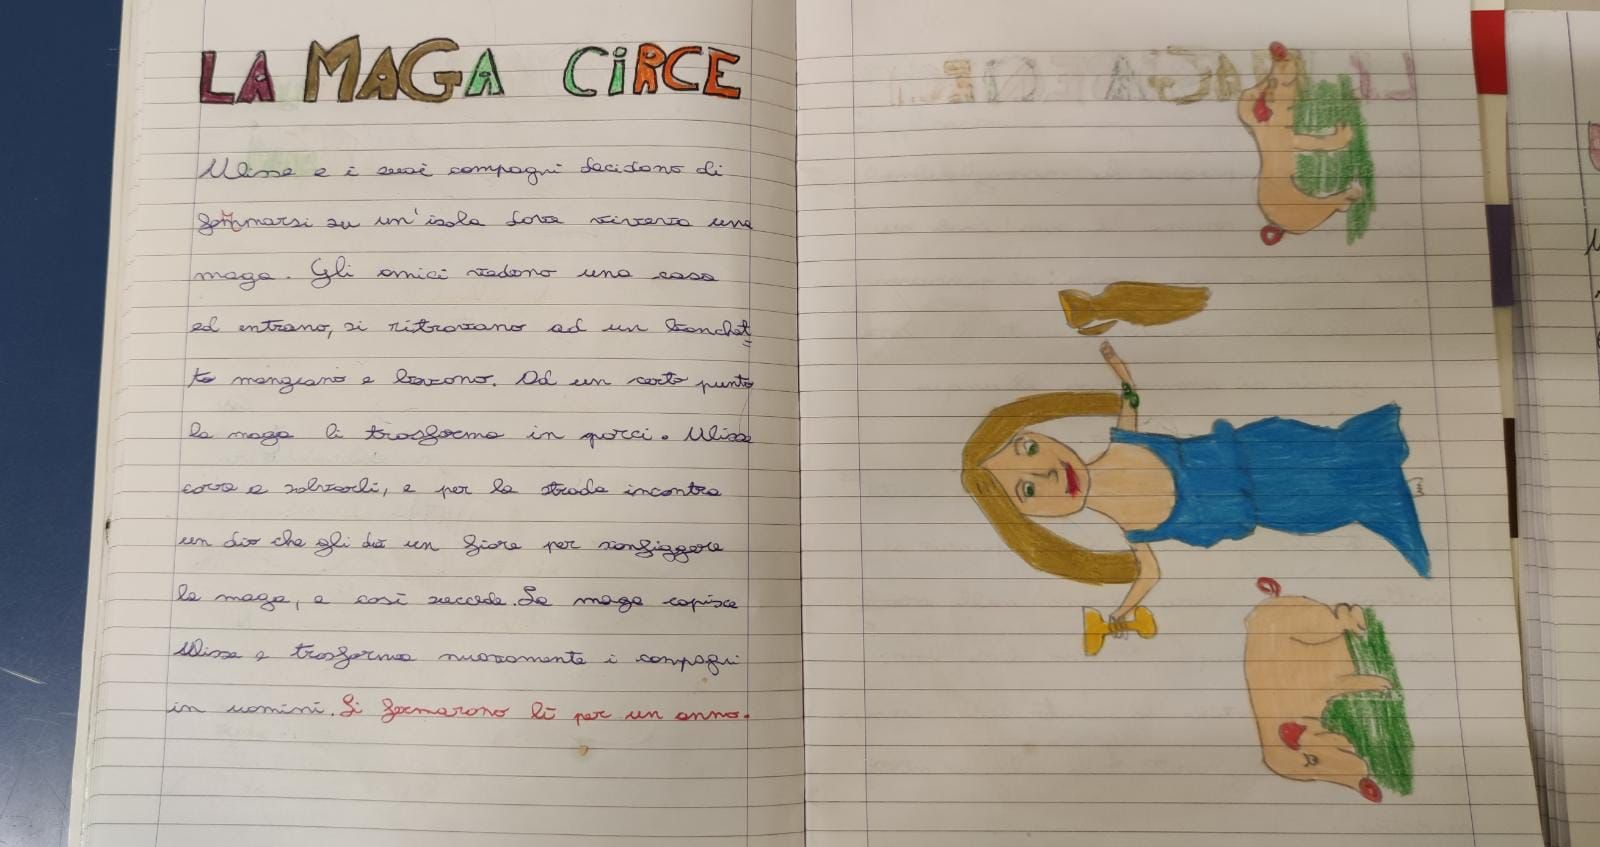 LA MAGA CIRCE
Ulisse e i suoi compagni decidono di
fermarsi su un'isola dove viveva una
maga. Gli amici vedono una casa
ed entrano, si ritrovano ad un banchet
to mangiano e bevono. Ad un certo punto
la maga li trasforma in porci. Ulisse
corre a salvarli, e per la strada incontra
un dio che gli dà un fiore per sconfiggere
la maga, e così succede. La maga capisce
Ulisse e trasforma nuovamente i compagni
in uomini. Si fermarono lì per un anno.